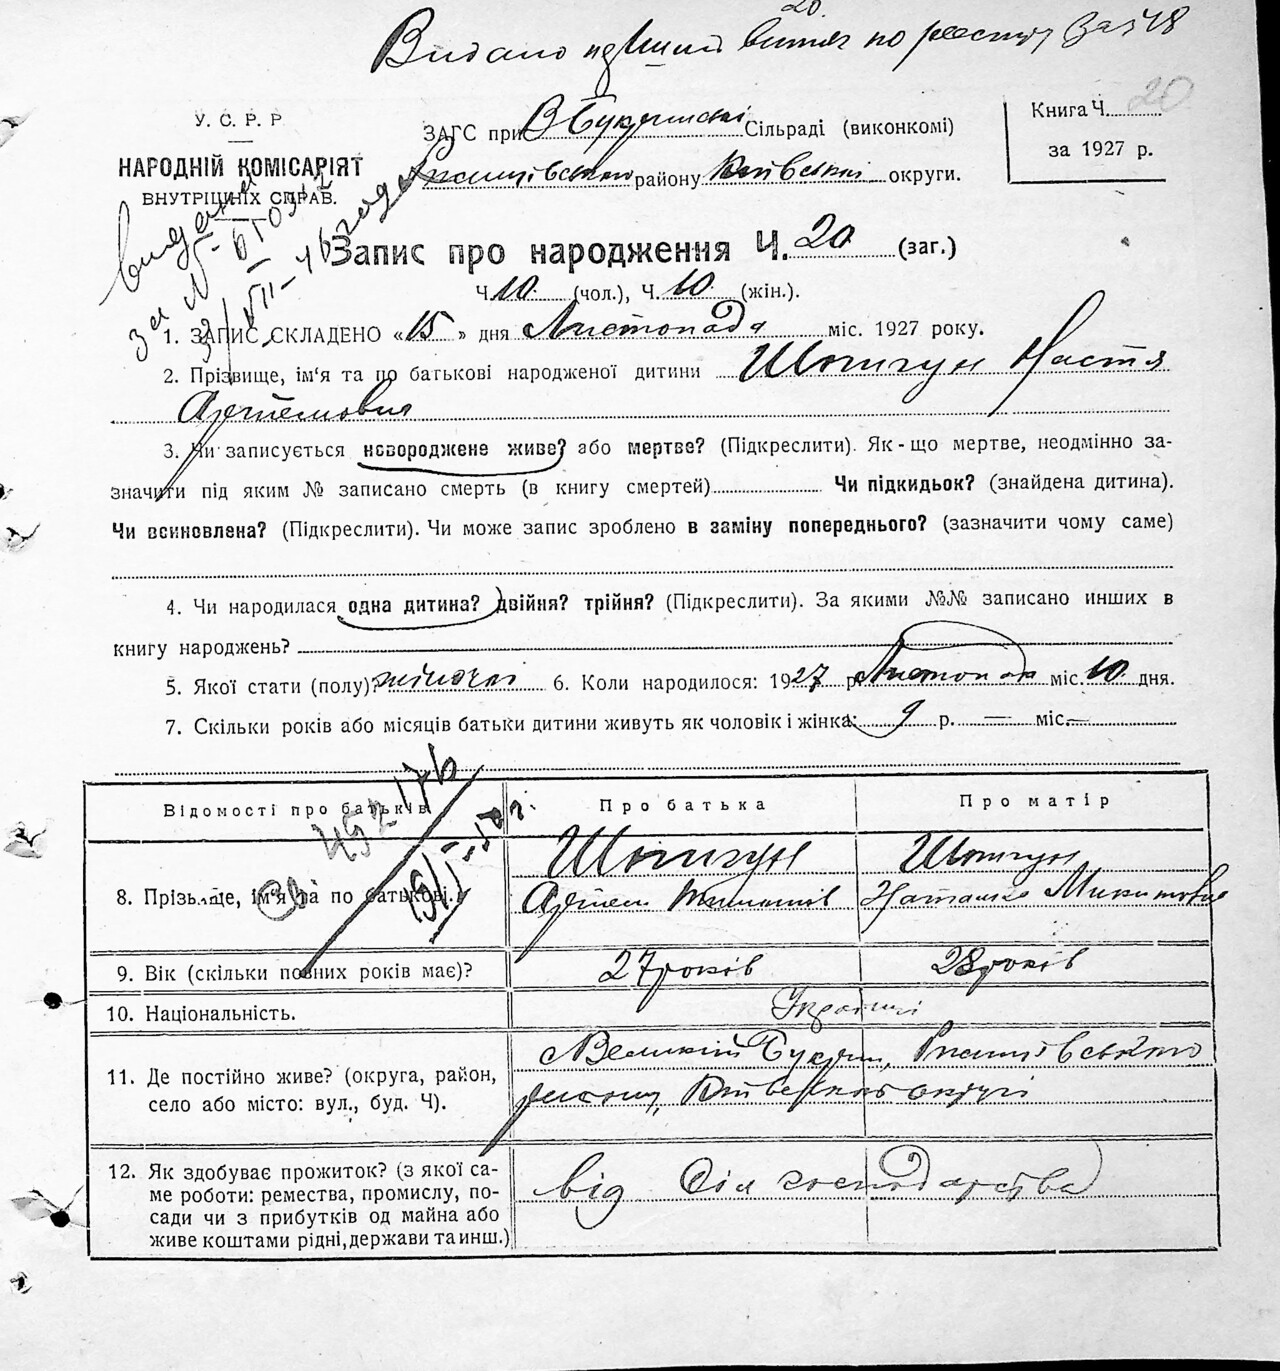 Видано перший витяг по реєстру за 48
20
У. С. Р. Р
НАРОДНІЙ КОМІСАРІЯТ
ВНУТРІШНІХ СПРАВ.
ЗАГС при В Букринські Сільраді (виконкомі)
Ржищівського району Київської округи.
Книга Ч. 20
за 1927 р.
видана
за №
Запис про народження Ч. 20 (заг.)
Ч. 10 (чол.), Ч. 10 (жін.).
1. ЗАПИС СКЛАДЕНО «15» дня Листопада міс. 1927 року.
2. Прізвище, ім'я та по батькові народженої дитини Шопгун Настя
Артемовна
3. Чи записується новороджене живе? або мертве? (Підкреслити). Як-що мертве, неодмінно за-
значити під яким № записано смерть (в книгу смертей) Чи підкидьок? (знайдена дитина).
Чи всиновлена? (Підкреслити). Чи може запис зроблено в заміну попереднього? (зазначити чому саме)
4. Чи народилася одна дитина? двійня? трійня? (Підкреслити). За якими №№ записано инших в
книгу народжень?
5. Якої стати (полу)? жіночої 6. Коли народилося: 1927 р. Листопада міс. 10 дня.
7. Скільки років або місяців батьки дитини живуть як чоловік і жінка: 9 р. — міс. —
Відомості про батьків Про батька Про матір
8. Прізвище, ім'я та по батькові. Шопгун Шопгун
Артем Наталка Микитовна
9. Вік (скільки повних років має)? 27 років 28 років
10. Національність. Українці
11. Де постійно живе? (округа, район, Великий Букрин, Ржищівського
село або місто: вул., буд. Ч). району, Київської округи
12. Як здобуває прожиток? (з якої са-
ме роботи: ремества, промислу, по- від Сіл господарства
сади чи з прибутків од майна або
живе коштами рідні, держави та инш.)